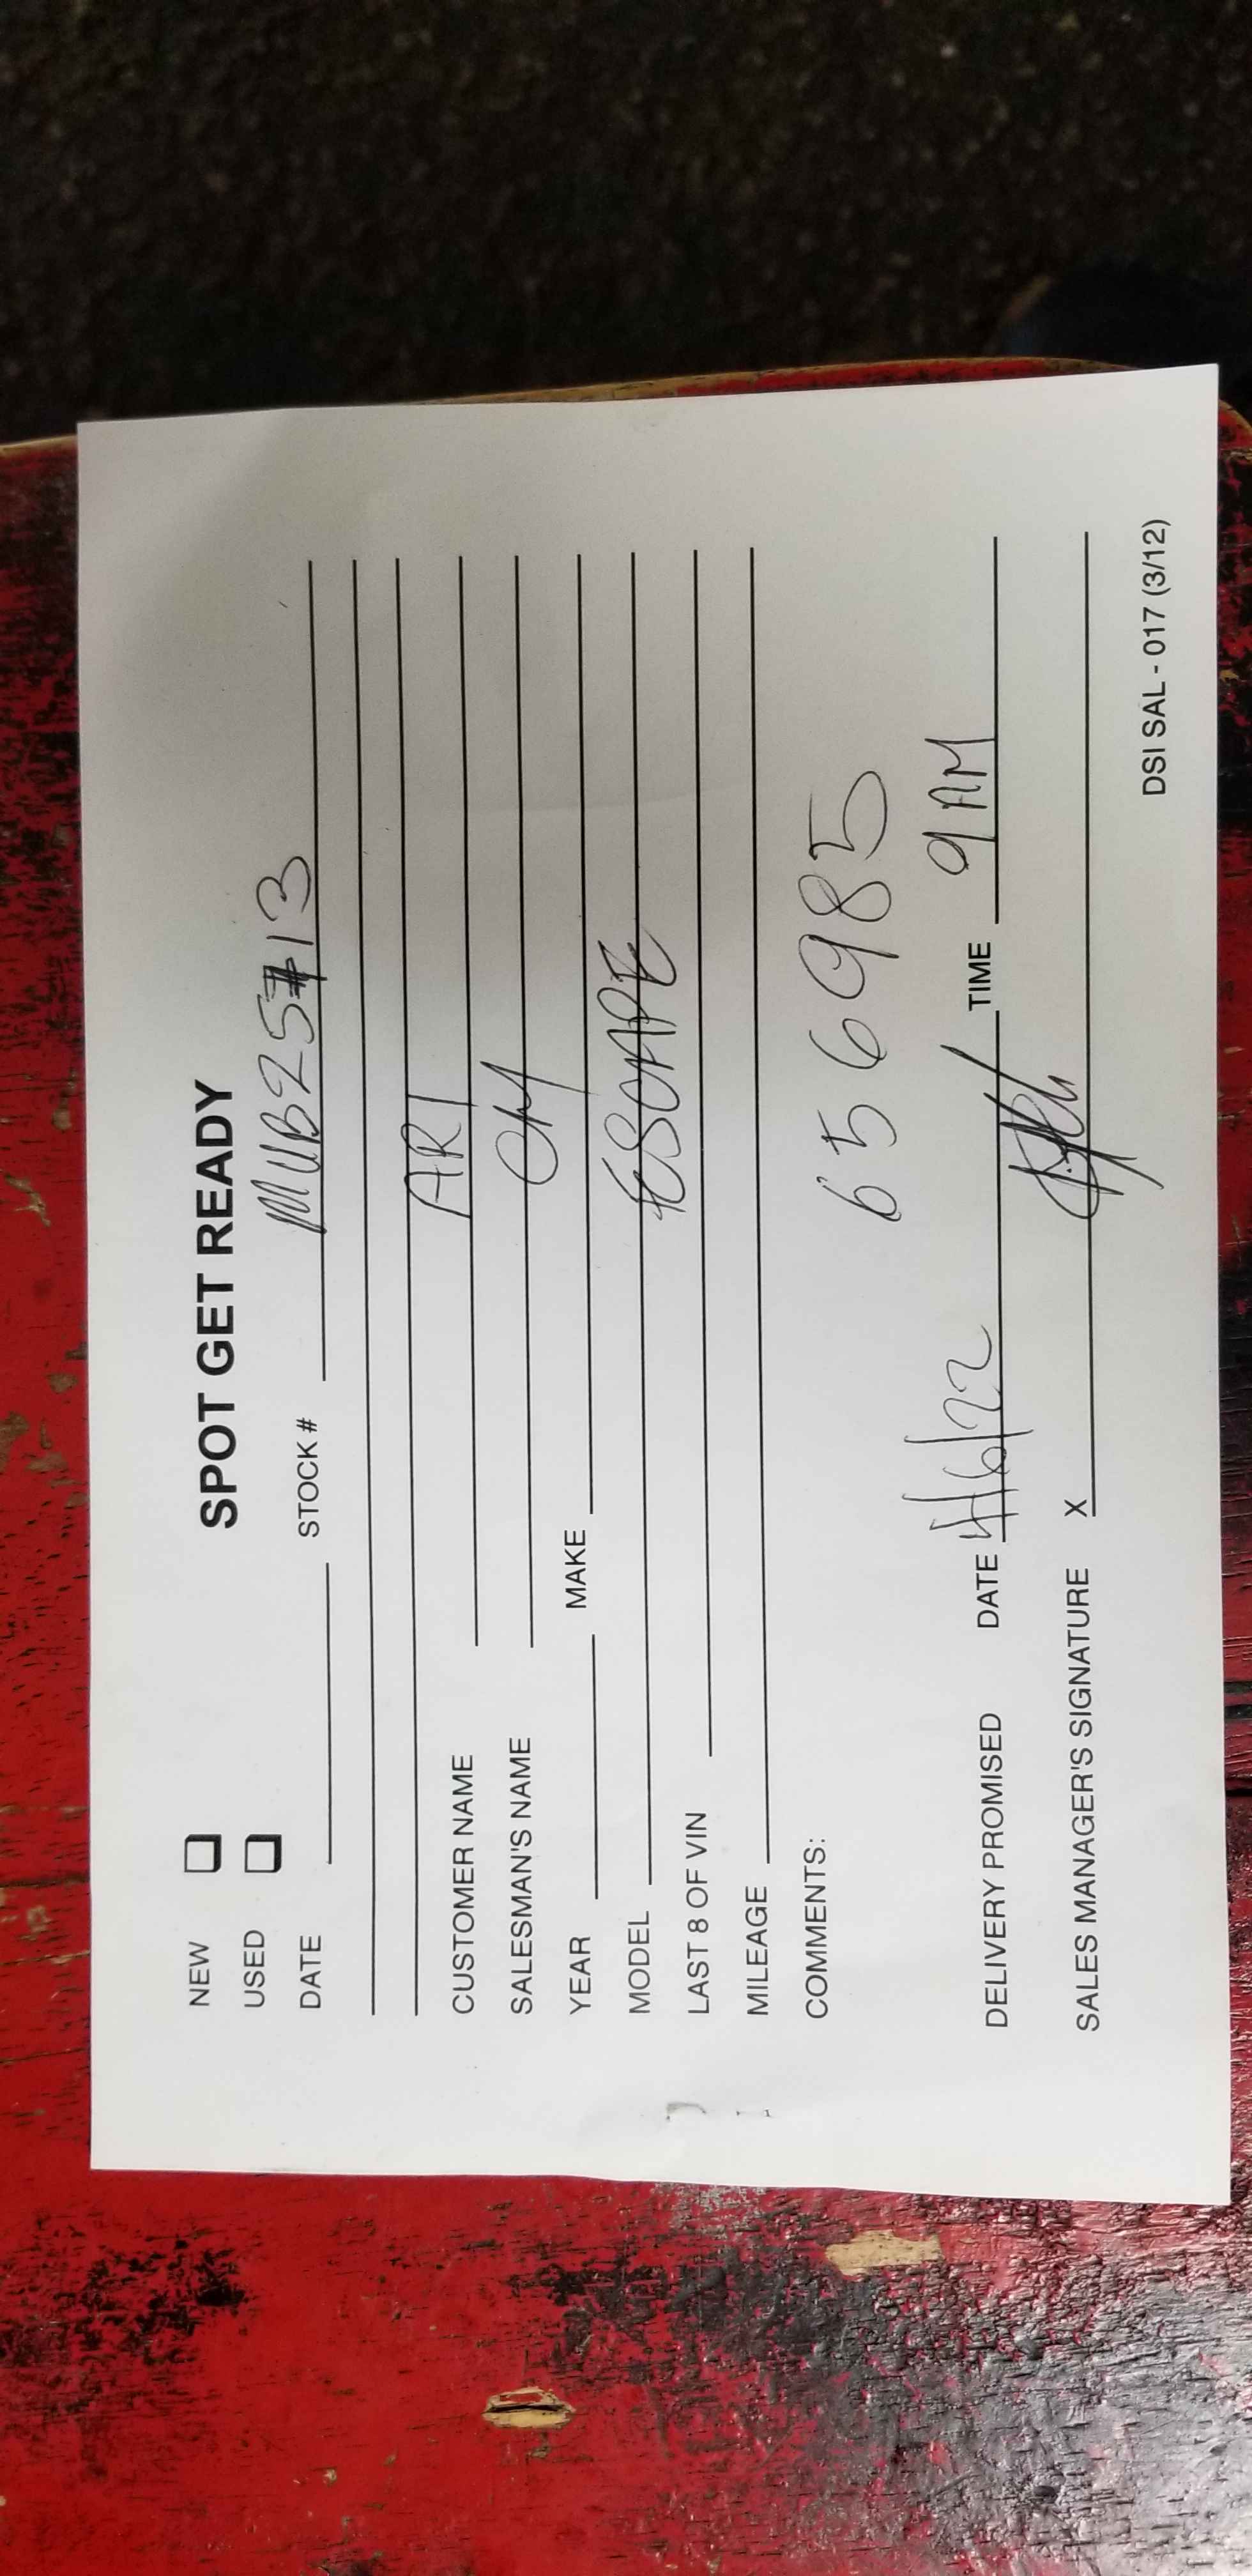 SPOT GET READY
NEW
USED
DATE STOCK # MUB25713
CUSTOMER NAME ART
SALESMAN'S NAME
YEAR MAKE
MODEL ESCAPE
LAST 8 OF VIN
MILEAGE
COMMENTS:
656985
DELIVERY PROMISED DATE 4/6/22 TIME 9 AM
SALES MANAGER'S SIGNATURE X
DSI SAL - 017 (3/12)